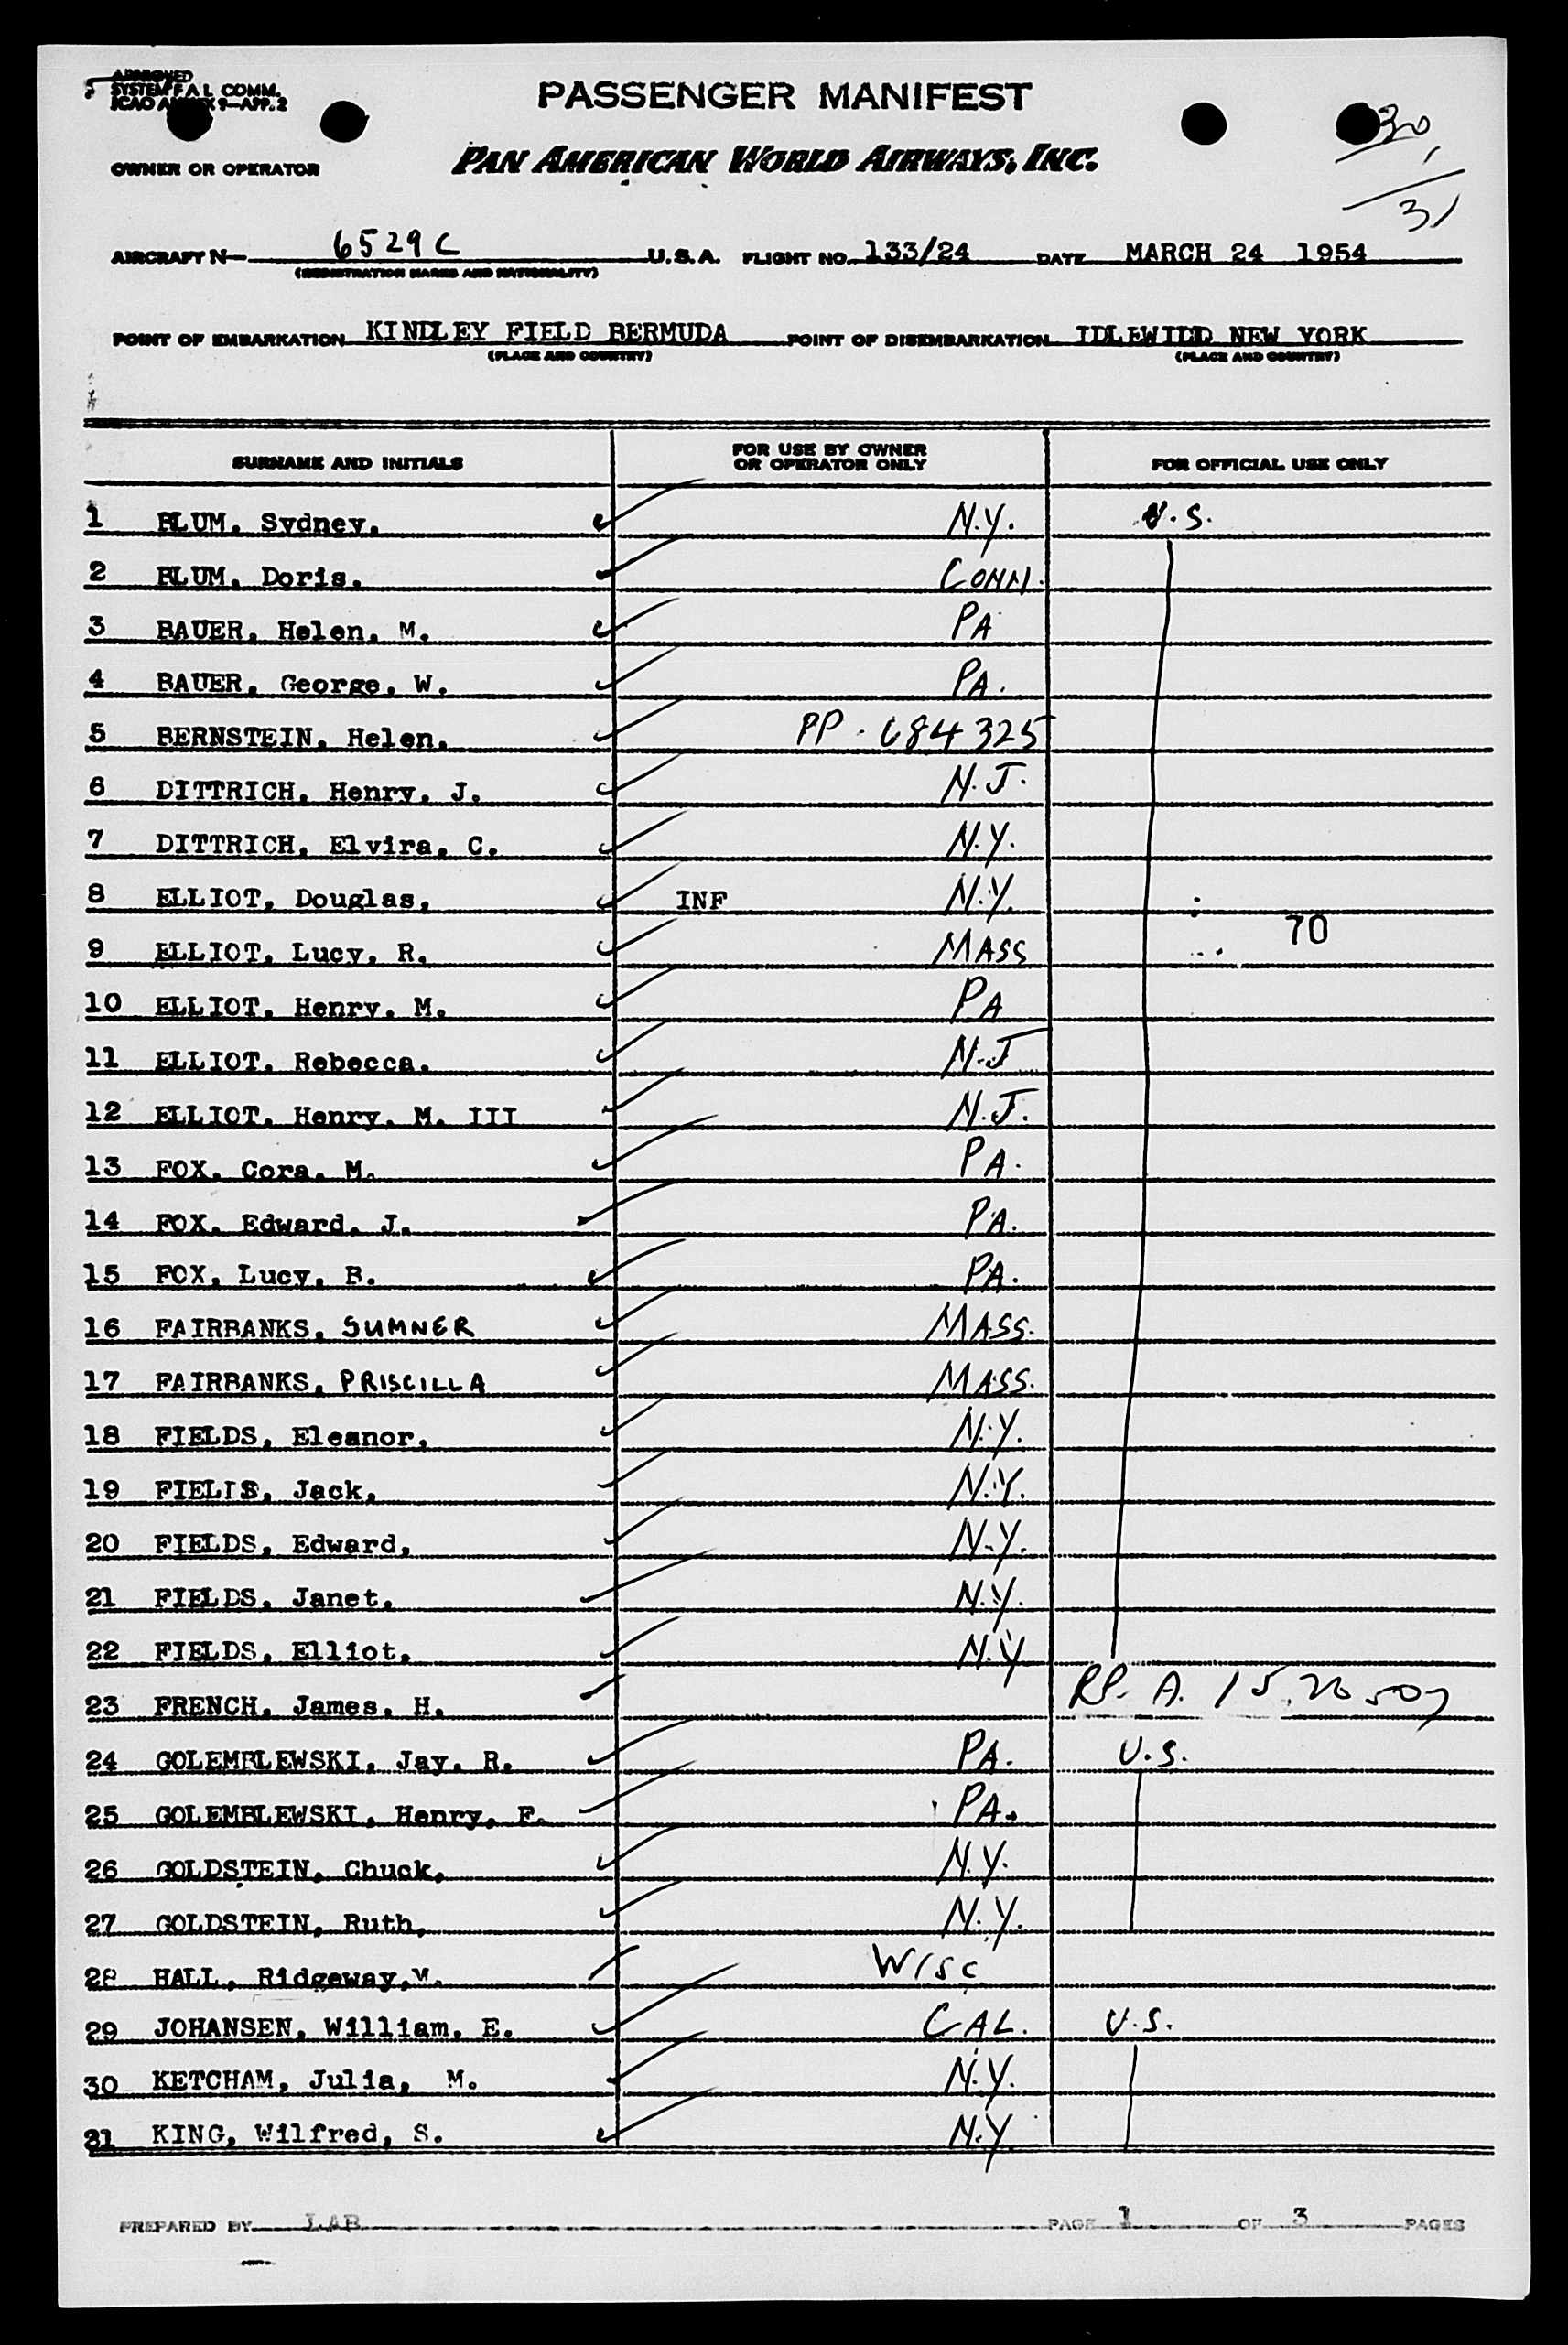 APPROVED
SYSTEM F A L COMM.
ICAO ANNEX 9—APP. 2
PASSENGER MANIFEST
OWNER OR OPERATOR
PAN AMERICAN WORLD AIRWAYS, INC.
30
1
31
AIRCRAFT N— 6529C U.S.A. FLIGHT NO. 133/24 DATE MARCH 24 1954
(REGISTRATION MARKS AND NATIONALITY)
POINT OF EMBARKATION KINDLEY FIELD BERMUDA POINT OF DISEMBARKATION IDLEWILD NEW YORK
(PLACE AND COUNTRY) (PLACE AND COUNTRY)
SURNAME AND INITIALS FOR USE BY OWNER OR OPERATOR ONLY FOR OFFICIAL USE ONLY
1 BLUM, Sydney. N.Y. U.S.
2 BLUM, Doris. CONN.
3 BAUER, Helen, M. PA
4 BAUER, George, W. PA.
5 BERNSTEIN, Helen. PP. 684325
6 DITTRICH, Henry, J. N.J.
7 DITTRICH, Elvira, C. N.Y.
8 ELLIOT, Douglas, INF N.Y.
70
9 ELLIOT, Lucy, R. MASS
10 ELLIOT, Henry, M. PA
11 ELLIOT, Rebecca. N.J
12 ELLIOT, Henry, M. III N.J.
13 FOX, Cora, M. PA.
14 FOX, Edward, J. PA.
15 FOX, Lucy, B. PA.
16 FAIRBANKS, SUMNER MASS.
17 FAIRBANKS, PRISCILLA MASS.
18 FIELDS, Eleanor, N.Y.
19 FIELDS, Jack, N.Y.
20 FIELDS, Edward, N.Y.
21 FIELDS, Janet, N.Y.
22 FIELDS, Elliot, N.Y
23 FRENCH, James, H. RP. A.
24 GOLEMBLEWSKI, Jay, R. PA. U.S.
25 GOLEMBLEWSKI, Henry, F. PA.
26 GOLDSTEIN, Chuck, N.Y.
27 GOLDSTEIN, Ruth, N.Y.
28 HALL, Ridgeway, Wisc
29 JOHANSEN, William, E. CAL. U.S.
30 KETCHAM, Julia, M. N.Y.
31 KING, Wilfred, S. N.Y.
PREPARED BY LAB PAGE 1 OF 3 PAGES